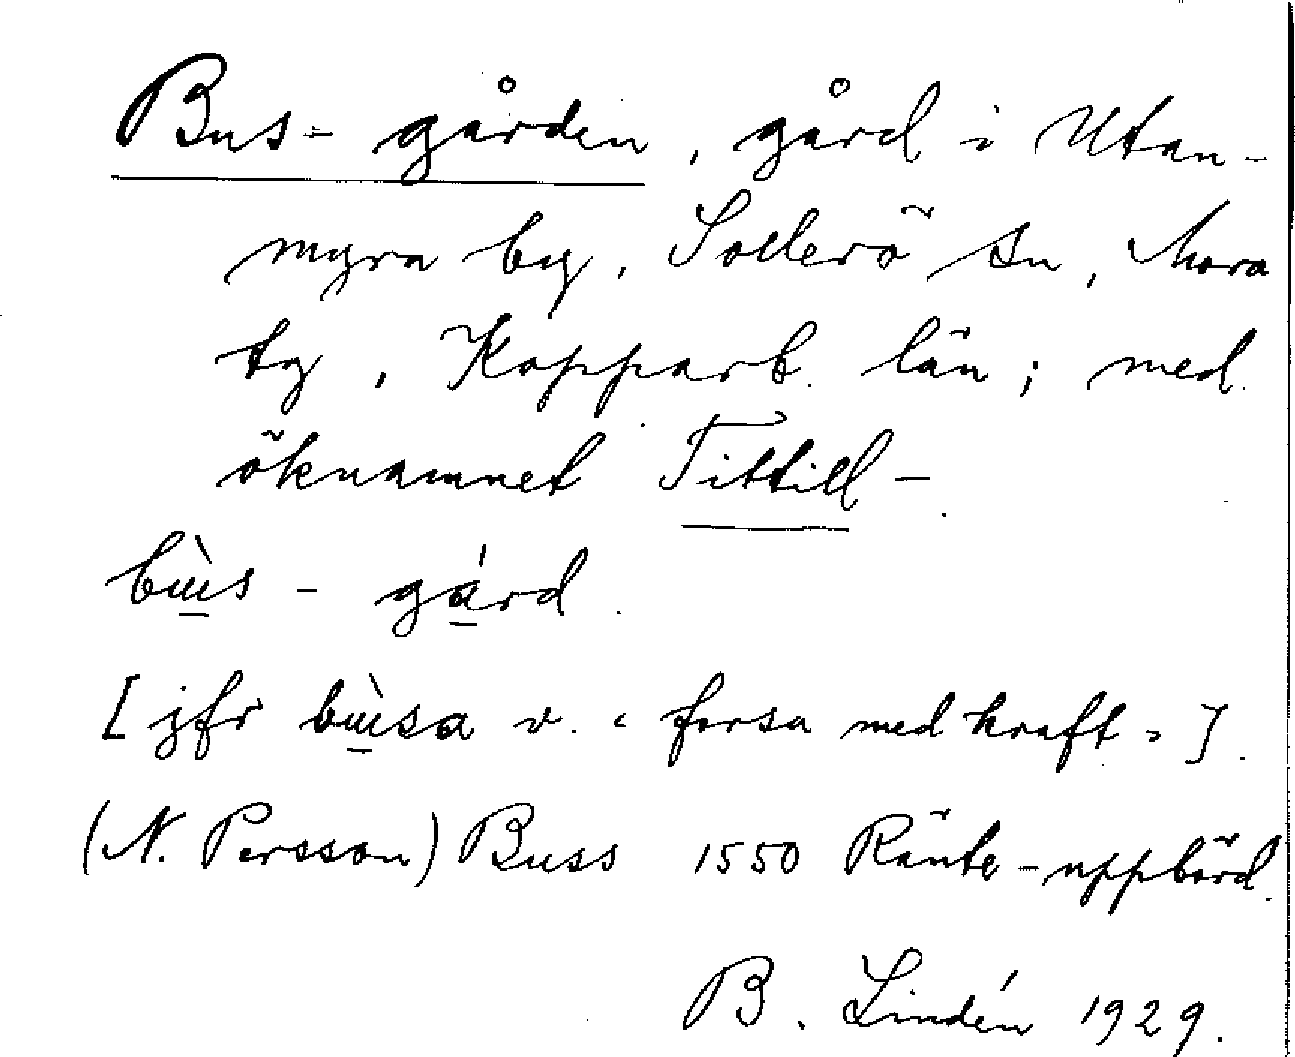 Bus-gården, gård i Utan-
myra by, Sollerö sn, Mora
tg, Kopparb. län; med
öknamnet Tittill-.
bùs - gárd.
[jfr bùsa v. "forsa med kraft"].
(N. Persson) Buss 1550 Ränte-uppbörd.
B. Lindén 1929.